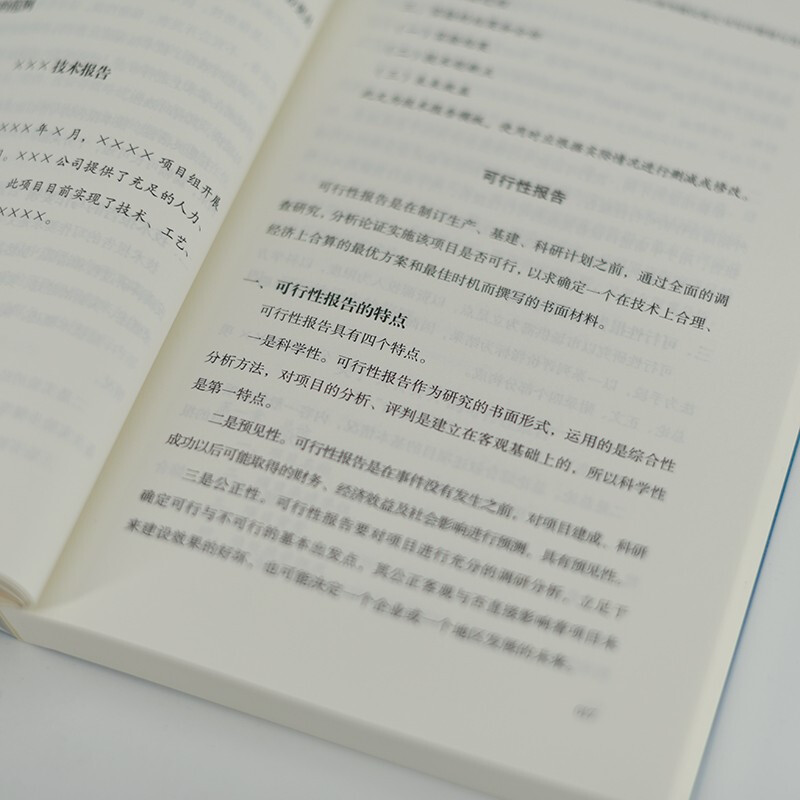 ×××技术报告
×××年×月，××××项目组开展
×××公司提供了充足的人力、
此项目目前实现了技术、工艺、
××××。
此文为技术报告模板，使用时应根据实际情况进行删减或修改。
可行性报告
可行性报告是在制订生产、基建、科研计划之前，通过全面的调
查研究，分析论证实施该项目是否可行，以求确定一个在技术上合理、
经济上合算的最优方案和最佳时机而撰写的书面材料。
一、可行性报告的特点
可行性报告具有四个特点。
一是科学性。可行性报告作为研究的书面形式，运用的是综合性
分析方法，对项目的分析、评判是建立在客观基础上的，所以科学性
是第一特点。
二是预见性。可行性报告是在事件没有发生之前，对项目建成、科研
成功以后可能取得的财务、经济效益及社会影响进行预测，具有预见性。
三是公正性。可行性报告要对项目进行充分的调研分析，立足于
确定可行与不可行的基本出发点，其公正客观与否直接影响着项目未
来建设效果的好坏，也可能决定一个企业或一个地区发展的未来。